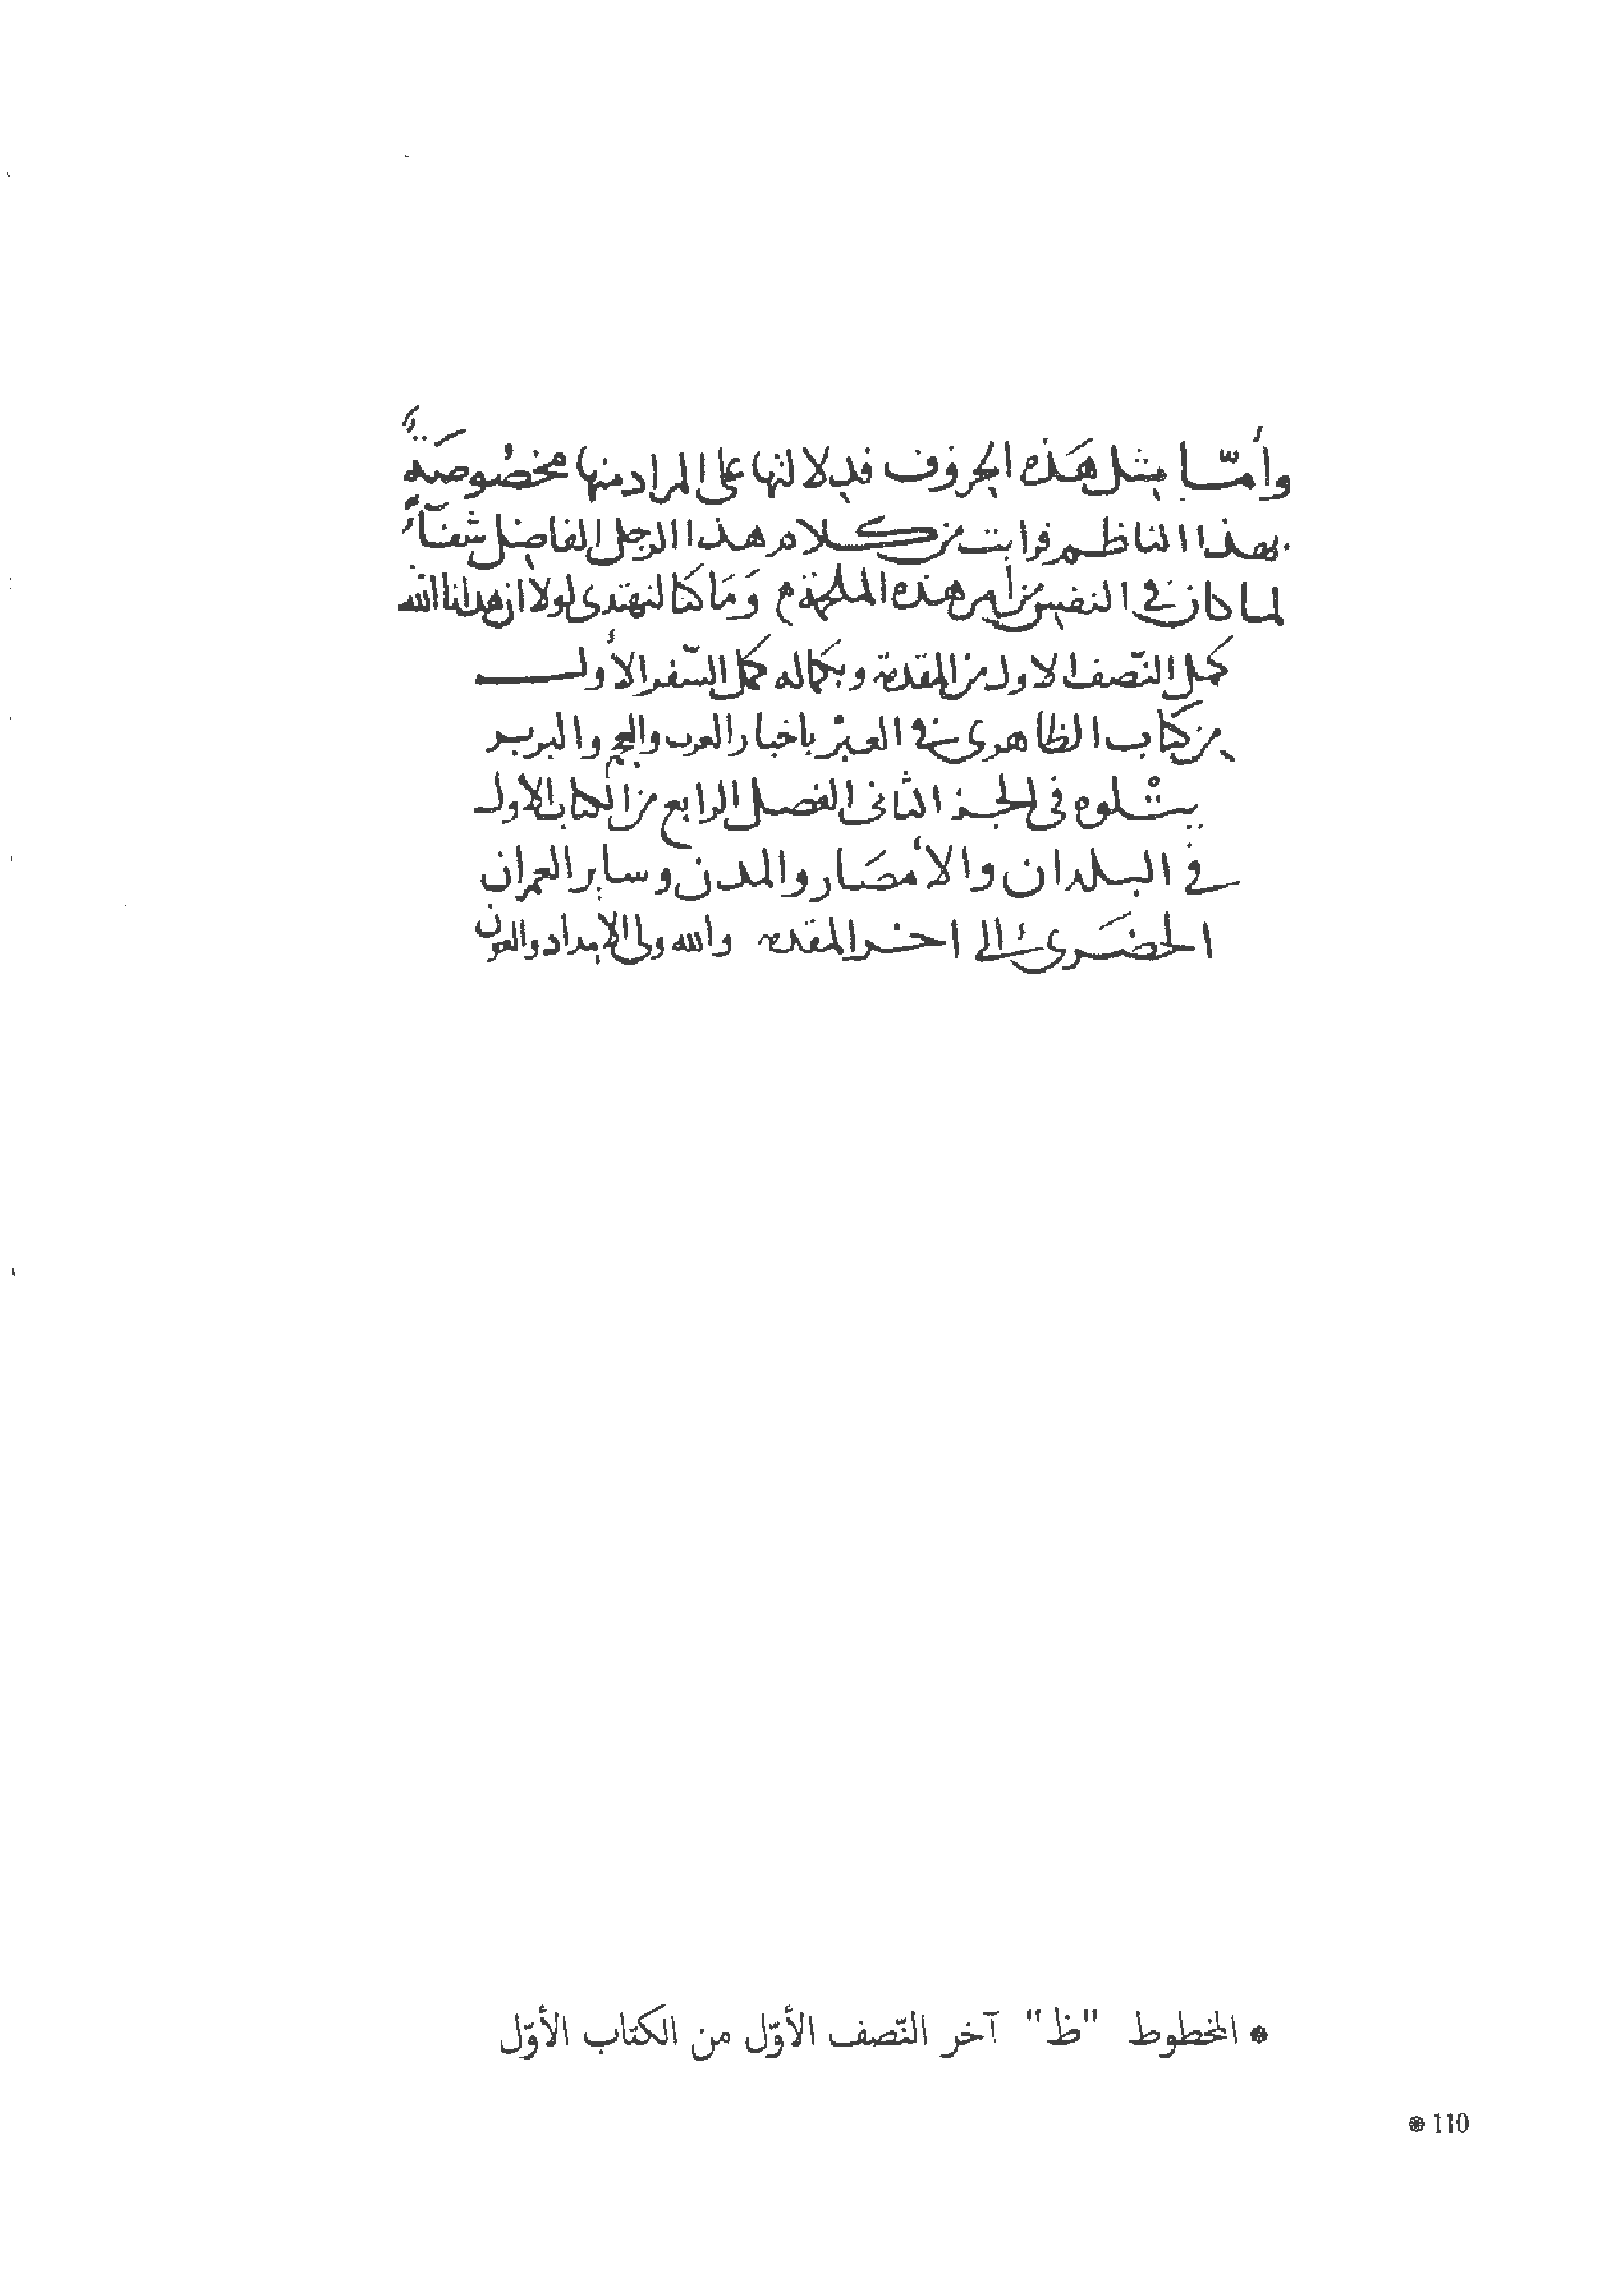 وأمّا مثل هَذه الحروف فدلالتها على المراد منها مخصُوصَةً
بهذا الناظم فرايت من كلام هذا الرجل الفاضل شفآءً
لما كان في النفس من أمر هذه الملحمة م وَمَا كنا لنهتدى لولا ان هدانا الله
كمل النّصف الاول من المقدمة وبكماله كمل السّفر الأول
من كتاب الظاهرى في العبر باخبار العرب والعجم والبربر
يتْلوه في الجزء الثانى الفصل الرابع من الكتاب الاول
في البلدان والأمصَار والمدن وساير العمران
الحضَرى إلى اخر المقدمه والله ولى الإمداد والعون
* المخطوط "ظ" آخر النّصف الأوّل من الكتاب الأوّل
110 *